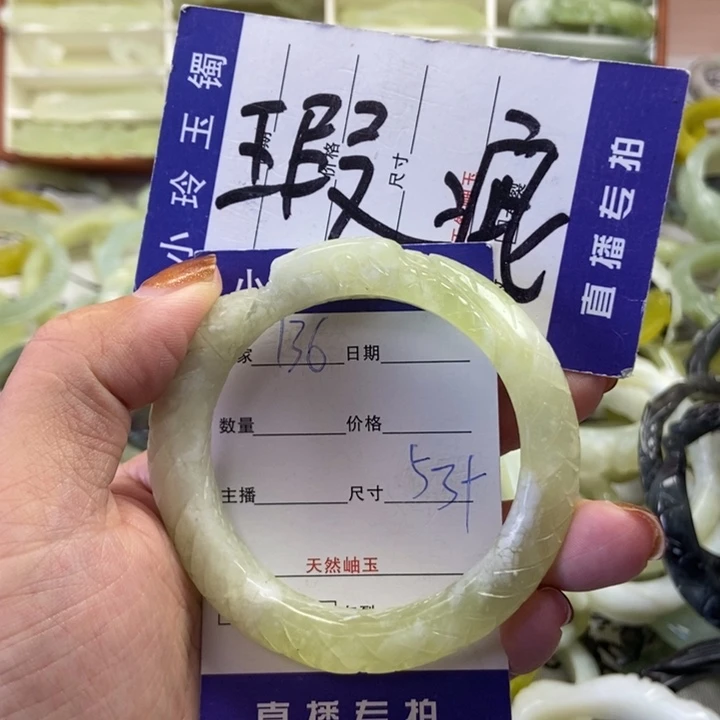 小玲玉镯
瑕疵
尺寸
直播专拍
小
家 136 日期
数量 价格
主播 尺寸 53+
天然岫玉
直播专拍